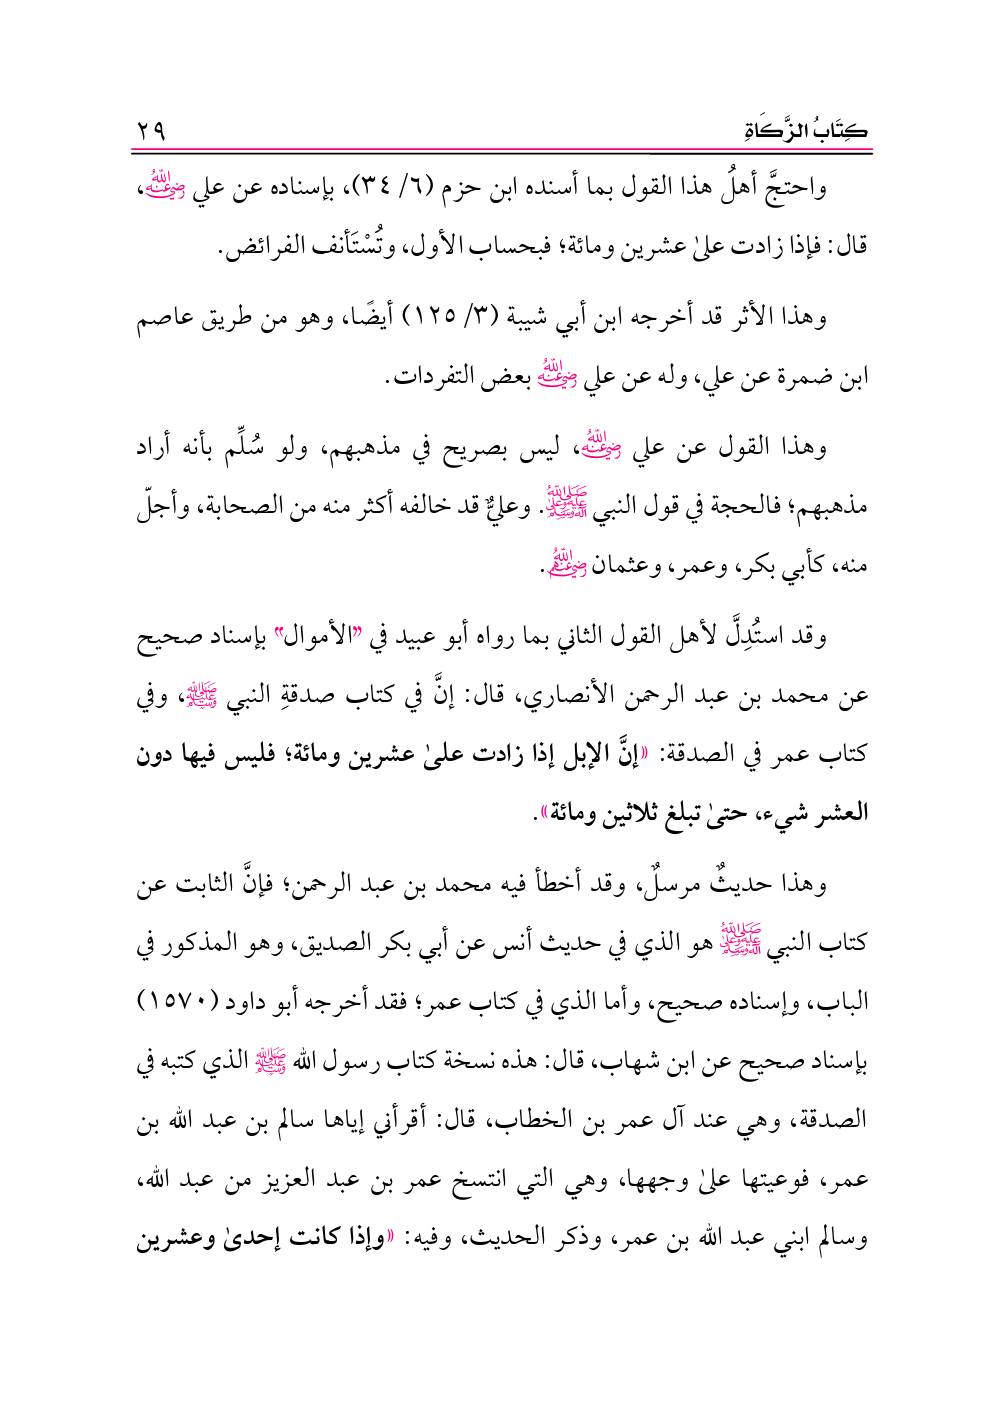 كِتَابُ الزَّكَاةِ ٢٩
واحتجَّ أهلُ هذا القول بما أسنده ابن حزم (٦/ ٣٤)، بإسناده عن علي رضي الله عنه،
قال: فإذا زادت علىٰ عشرين ومائة؛ فبحساب الأول، وتُسْتَأنف الفرائض.
وهذا الأثر قد أخرجه ابن أبي شيبة (٣/ ١٢٥) أيضًا، وهو من طريق عاصم
ابن ضمرة عن علي، وله عن علي رضي الله عنه بعض التفردات.
وهذا القول عن علي رضي الله عنه، ليس بصريح في مذهبهم، ولو سُلِّم بأنه أراد
مذهبهم؛ فالحجة في قول النبي صلى الله عليه وعلى آله وسلم. وعليٌّ قد خالفه أكثر منه من الصحابة، وأجلّ
منه، كأبي بكر، وعمر، وعثمان رضي الله عنهم.
وقد استُدِلَّ لأهل القول الثاني بما رواه أبو عبيد في "الأموال" بإسناد صحيح
عن محمد بن عبد الرحمن الأنصاري، قال: إنَّ في كتاب صدقةِ النبي ﷺ، وفي
كتاب عمر في الصدقة: «إنَّ الإبل إذا زادت علىٰ عشرين ومائة؛ فليس فيها دون
العشر شيء، حتىٰ تبلغ ثلاثين ومائة».
وهذا حديثٌ مرسلٌ، وقد أخطأ فيه محمد بن عبد الرحمن؛ فإنَّ الثابت عن
كتاب النبي صلى الله عليه وعلى آله وسلم هو الذي في حديث أنس عن أبي بكر الصديق، وهو المذكور في
الباب، وإسناده صحيح، وأما الذي في كتاب عمر؛ فقد أخرجه أبو داود (١٥٧٠)
بإسناد صحيح عن ابن شهاب، قال: هذه نسخة كتاب رسول الله ﷺ الذي كتبه في
الصدقة، وهي عند آل عمر بن الخطاب، قال: أقرأني إياها سالم بن عبد الله بن
عمر، فوعيتها علىٰ وجهها، وهي التي انتسخ عمر بن عبد العزيز من عبد الله،
وسالم ابني عبد الله بن عمر، وذكر الحديث، وفيه: «وإذا كانت إحدىٰ وعشرين